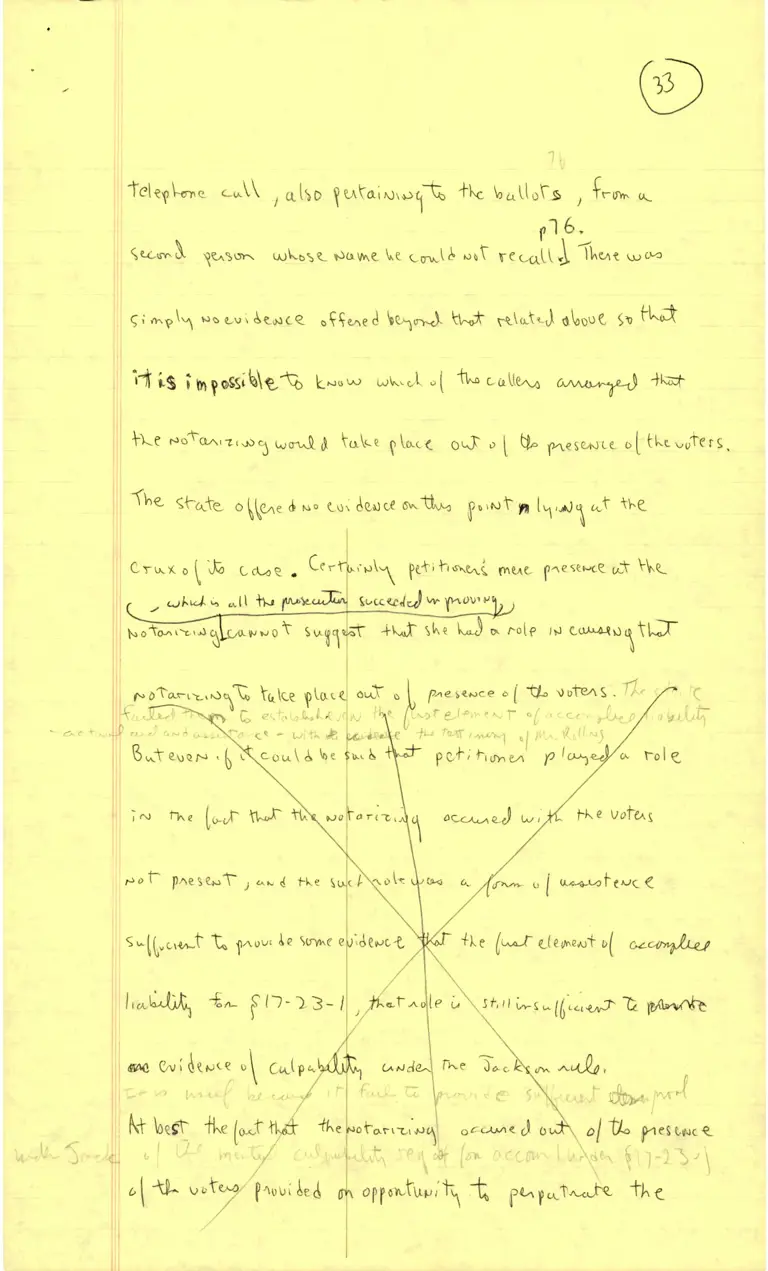 33
76
telephone call, also pertaining to the ballots, from a
p76.
second person whose name he could not recall. There was
simply no evidence offered beyond that related above so that
it is impossible to know which of the callers arranged that
the notarizing would take place out of the presence of the voters.
The state offered no evidence on this point lying at the
crux of its case. Certainly petitioner's mere presence at the
, which is all the prosecution succeeded in proving,
notarizing cannot suggest that she had a role in causing that
notarizing to take place out of presence of the voters. The state
failed to establish even the first element of accomplice liability
- actual aid and assistance - with the testimony of Mr. Rollins
But even if it could be said that petitioner played a role
in the fact that the notarizing occured with the voters
not present, and the such role was a form of assistence
sufficient to provide some evidence that the first element of accomplice
liability for §17-23-1, that role is still insufficient to provide
evidence of culpability under the Jackson rule.
It is because it fails to provide sufficient proof
At best the fact that the notarizing occured out of the presence
under Jackson of the mental culpability req for accom under §17-23-1
of the voters provided an opportunity to perpetrate the